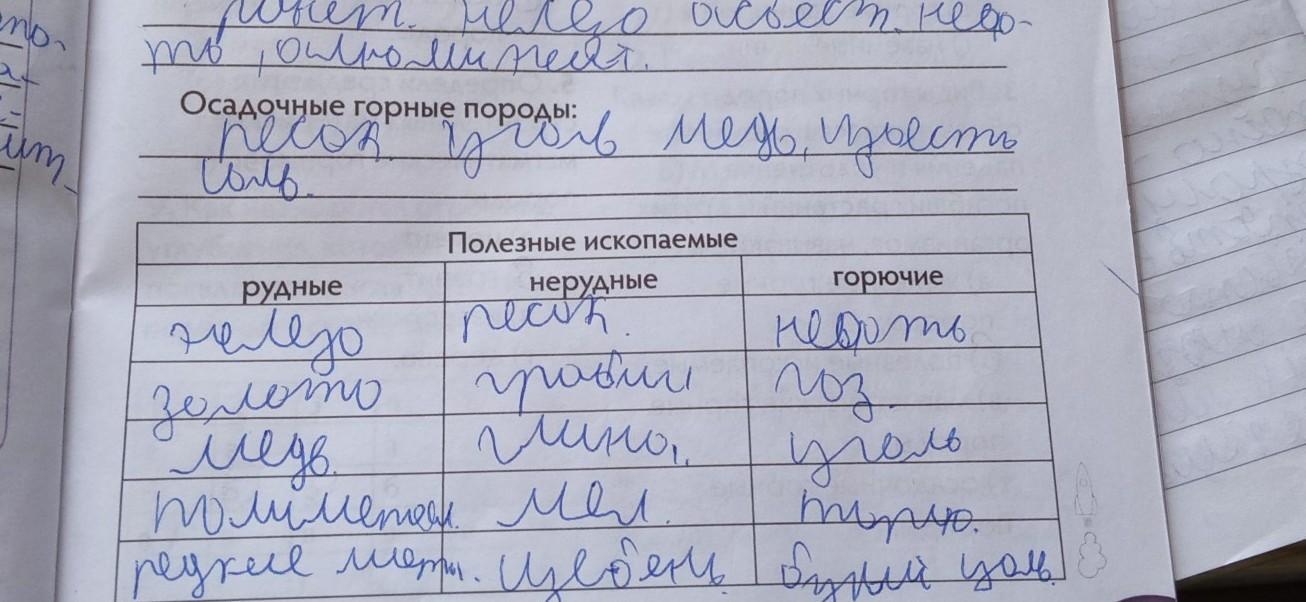 железо асбест, неф-
ть, алюминят.
Осадочные горные породы:
песок уголь медь, известь
соль.
Полезные ископаемые
рудные нерудные горючие
железо песок. нефть
золото гравий газ.
медь. глина. уголь
полиметал. мел.
редкие мет. щебень. бурый уголь.